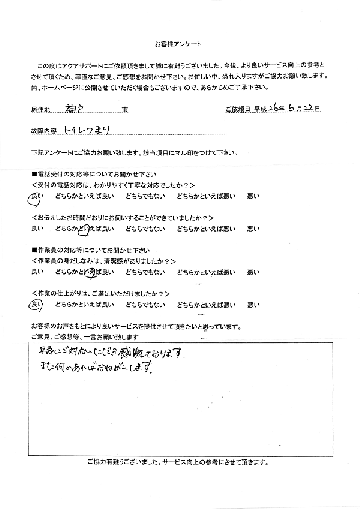 お客様アンケート
この度はアクアサポートにご依頼頂きまして誠に有難うございました。今後、より良いサービス向上の参考と
させて頂くため、率直なご意見、ご感想をお聞かせ下さい。お忙しい中、恐れ入りますがご協力お願い致します。
尚、ホームページに公開させていただく場合もございますので、あらかじめご了承下さい。
様 ご依頼日 平成26年6月22日
故障内容 トイレつまり
下記アンケートにご協力お願い致します。該当項目にマル印をつけて下さい。
■電話受付の対応等についてお聞かせ下さい
<受付の電話対応は、わかりやすく丁寧な対応でしたか?>
良い どちらかといえば良い どちらでもない どちらかといえば悪い 悪い
<お伝えしたお時間どおりにお伺いすることができていましたか?>
良い どちらかといえば良い どちらでもない どちらかといえば悪い 悪い
■作業員の対応等についてお聞かせ下さい
<作業員の身だしなみは、清潔感がありましたか?>
良い どちらかといえば良い どちらでもない どちらかといえば悪い 悪い
<作業の仕上がりは、ご満足いただけましたか?>
良い どちらかといえば良い どちらでもない どちらかといえば悪い 悪い
お客様のお声をもとにより良いサービスを提供させて頂きたいと思っています。
ご意見、ご感想等、一言お願い致します
早急にご対応いただき感謝しております
また何かあればお願いします。
ご協力有難うございました、サービス向上の参考にさせて頂きます。